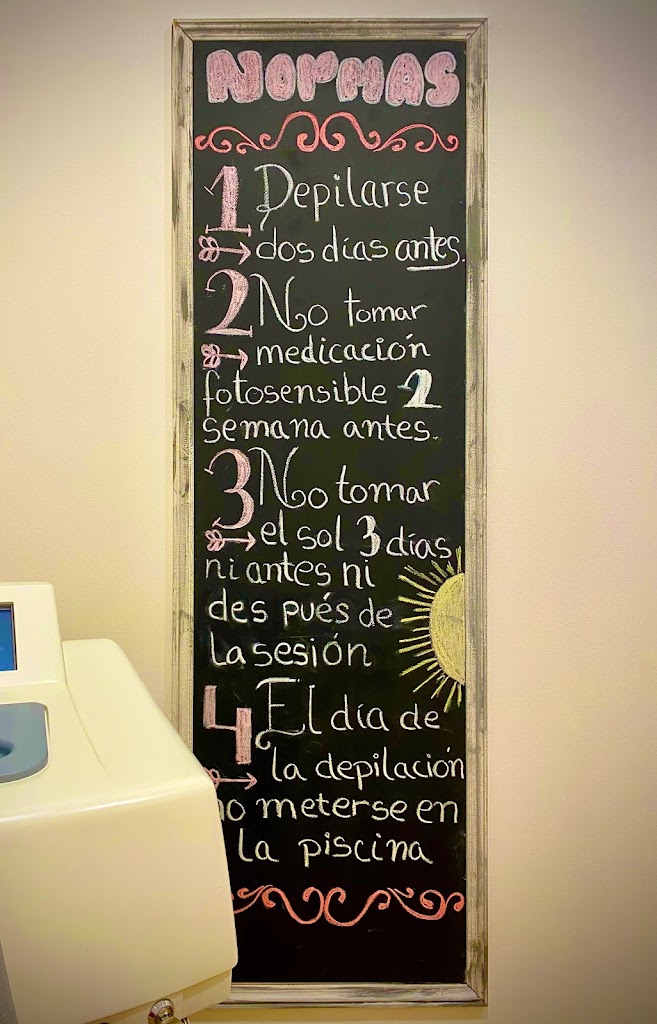 NORMAS
1 Depilarse
dos días antes.
2 No tomar
medicación
fotosensible 2
semana antes.
3 No tomar
el sol 3 días
ni antes ni
des pués de
la sesión
4 El día de
la depilación
no meterse en
la piscina